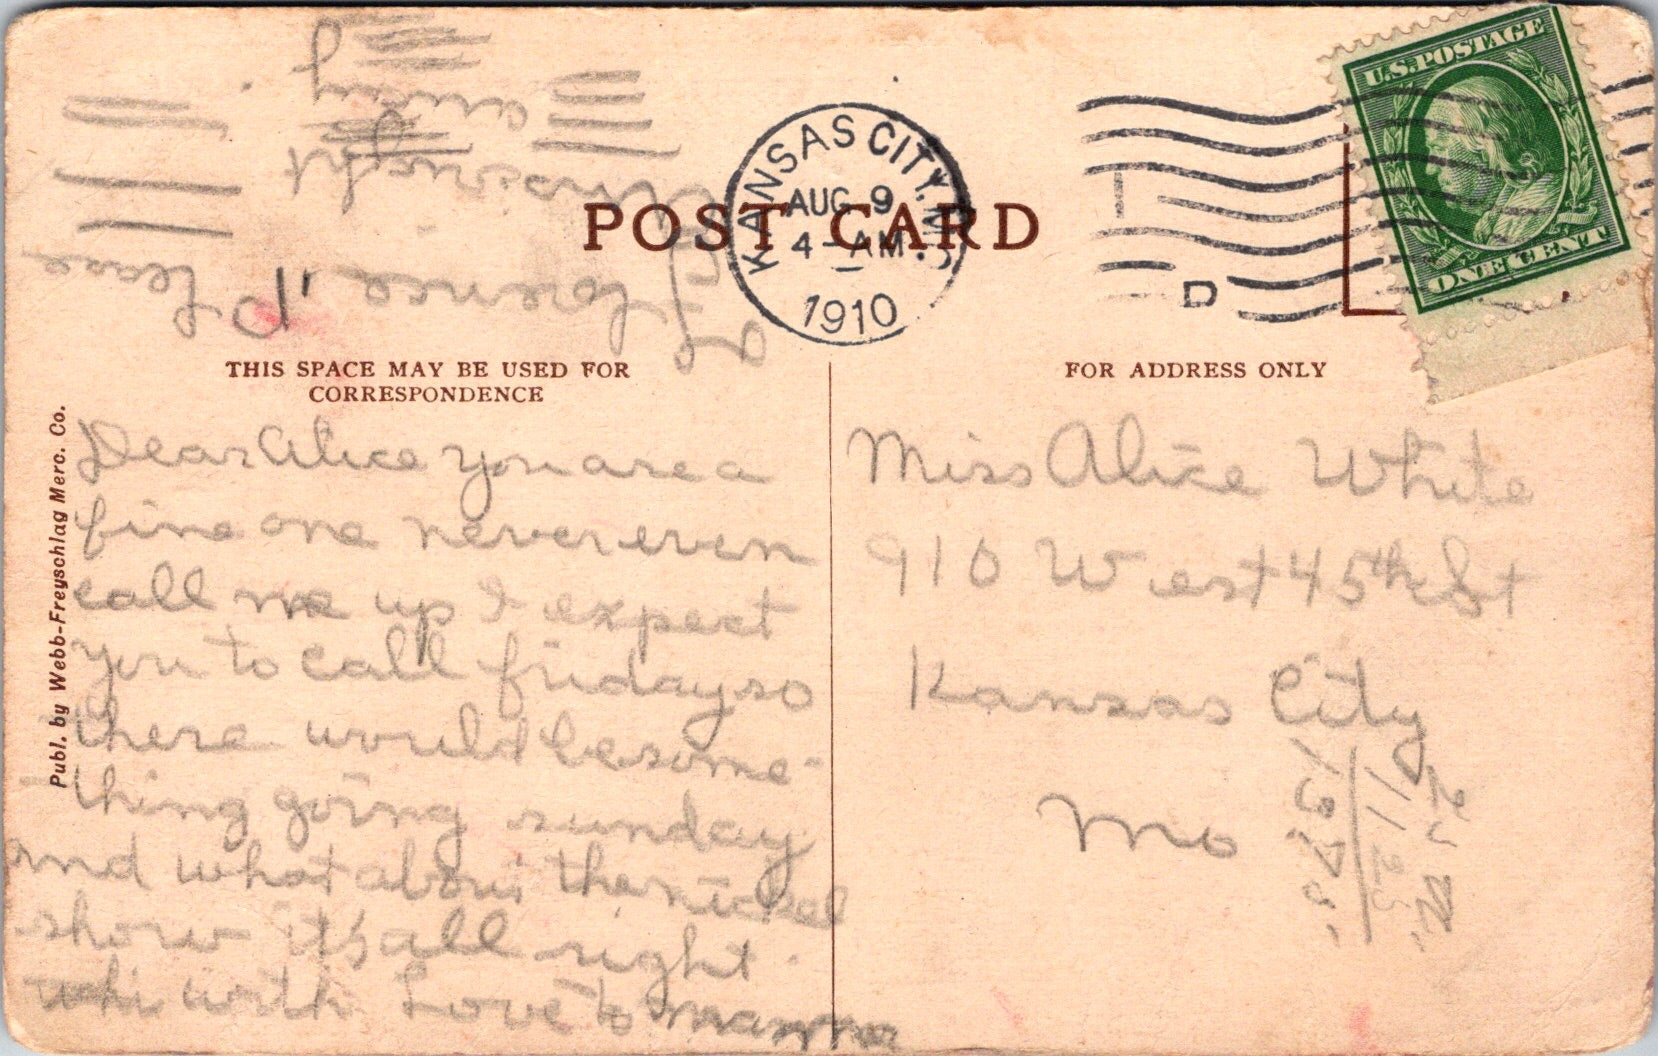 POST CARD
KANSAS CITY, MO.
AUG 9
4 - AM
1910
D
U.S. POSTAGE
ONE CENT
THIS SPACE MAY BE USED FOR
CORRESPONDENCE
FOR ADDRESS ONLY
Publ. by Webb-Freyschlag Merc. Co.
Dear Alice you are a
fine one never even
call me up I expect
you to call friday so
there would be some-
thing going sunday
and what about the nickel
show it's all right
with Love to mamma
Miss Alice White
910 West 45th St
Kansas City
Mo